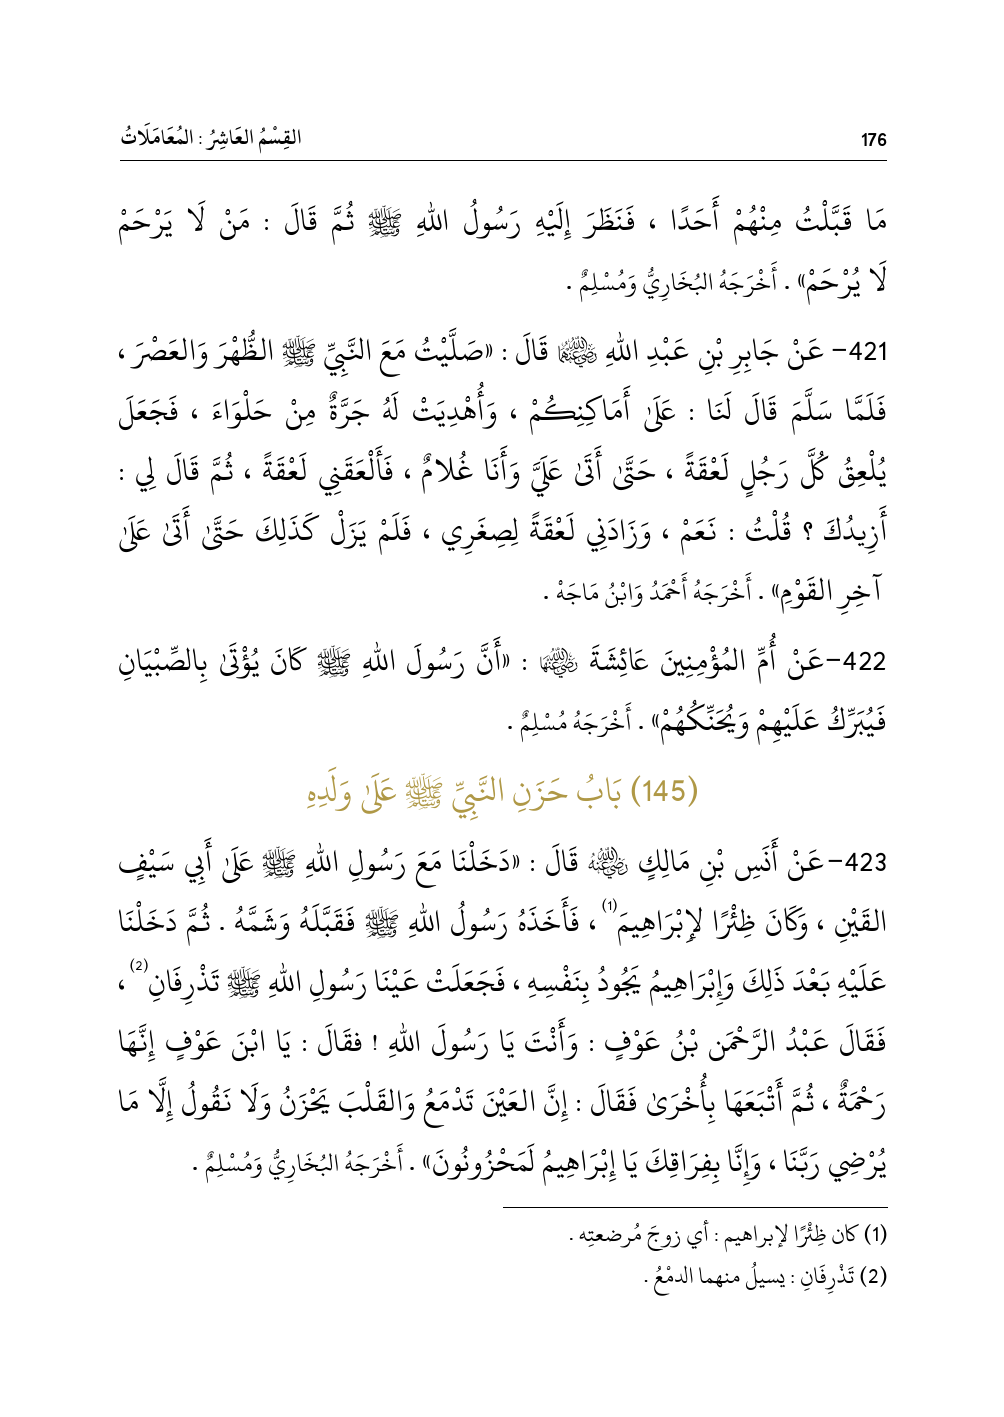 176
القِسْمُ العَاشِرُ : المُعَامَلَاتُ
مَا قَبَّلْتُ مِنْهُمْ أَحَدًا ، فَنَظَرَ إِلَيْهِ رَسُولُ اللهِ ﷺ ثُمَّ قَالَ : مَنْ لَا يَرْحَمْ
لَا يُرْحَمْ» . أَخْرَجَهُ البُخَارِيُّ وَمُسْلِمٌ .
421- عَنْ جَابِرِ بْنِ عَبْدِ اللهِ رضي الله عنهما قَالَ : «صَلَّيْتُ مَعَ النَّبِيِّ ﷺ الظُّهْرَ وَالعَصْرَ ،
فَلَمَّا سَلَّمَ قَالَ لَنَا : عَلَىٰ أَمَاكِنِكُمْ ، وَأُهْدِيَتْ لَهُ جَرَّةٌ مِنْ حَلْوَاءَ ، فَجَعَلَ
يُلْعِقُ كُلَّ رَجُلٍ لَعْقَةً ، حَتَّىٰ أَتَىٰ عَلَيَّ وَأَنَا غُلامٌ ، فَأَلْعَقَنِي لَعْقَةً ، ثُمَّ قَالَ لِي :
أَزِيدُكَ ؟ قُلْتُ : نَعَمْ ، وَزَادَنِي لَعْقَةً لِصِغَرِي ، فَلَمْ يَزَلْ كَذَلِكَ حَتَّىٰ أَتَىٰ عَلَىٰ
آخِرِ القَوْمِ» . أَخْرَجَهُ أَحْمَدُ وَابْنُ مَاجَهْ .
422-عَنْ أُمِّ المُؤْمِنِينَ عَائِشَةَ رضي الله عنها : «أَنَّ رَسُولَ اللهِ ﷺ كَانَ يُؤْتَىٰ بِالصِّبْيَانِ
فَيُبَرِّكُ عَلَيْهِمْ وَيُحَنِّكُهُمْ» . أَخْرَجَهُ مُسْلِمٌ .
(145) بَابُ حَزَنِ النَّبِيِّ ﷺ عَلَىٰ وَلَدِهِ
423-عَنْ أَنَسِ بْنِ مَالِكٍ رضي الله عنه قَالَ : «دَخَلْنَا مَعَ رَسُولِ اللهِ ﷺ عَلَىٰ أَبِي سَيْفٍ
القَيْنِ ، وَكَانَ ظِئْرًا لإِبْرَاهِيمَ(1) ، فَأَخَذَهُ رَسُولُ اللهِ ﷺ فَقَبَّلَهُ وَشَمَّهُ . ثُمَّ دَخَلْنَا
عَلَيْهِ بَعْدَ ذَلِكَ وَإِبْرَاهِيمُ يَجُودُ بِنَفْسِهِ ، فَجَعَلَتْ عَيْنَا رَسُولِ اللهِ ﷺ تَذْرِفَانِ(2) ،
فَقَالَ عَبْدُ الرَّحْمَن بْنُ عَوْفٍ : وَأَنْتَ يَا رَسُولَ اللهِ ! فقَالَ : يَا ابْنَ عَوْفٍ إِنَّهَا
رَحْمَةٌ ، ثُمَّ أَتْبَعَهَا بِأُخْرَىٰ فَقَالَ : إِنَّ العَيْنَ تَدْمَعُ وَالقَلْبَ يَحْزَنُ وَلَا نَقُولُ إِلَّا مَا
يُرْضِي رَبَّنَا ، وَإِنَّا بِفِرَاقِكَ يَا إِبْرَاهِيمُ لَمَحْزُونُونَ» . أَخْرَجَهُ البُخَارِيُّ وَمُسْلِمٌ .
(1) كان ظِئْرًا لإبراهيم : أي زوجَ مُرضعتِه .
(2) تَذْرِفَانِ : يسيلُ منهما الدمْعُ .